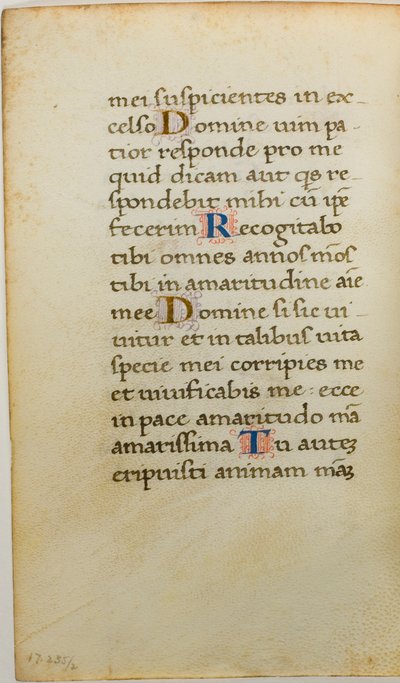 mei suspicientes in ex-
celso Domine uim pa-
tior responde pro me
quid dicam aut qs re-
spondebit mihi cū ip̄e
fecerim Recogitabo
tibi omnes annos mōs
tibi in amaritudine aīe
mee Domine si sic ui-
uitur et in talibus uita
specie mei corripies me
et uiuificabis me: ecce
in pace amaritudo mā
amarissima Tu autez
eripuisti animam māz
17.235/2